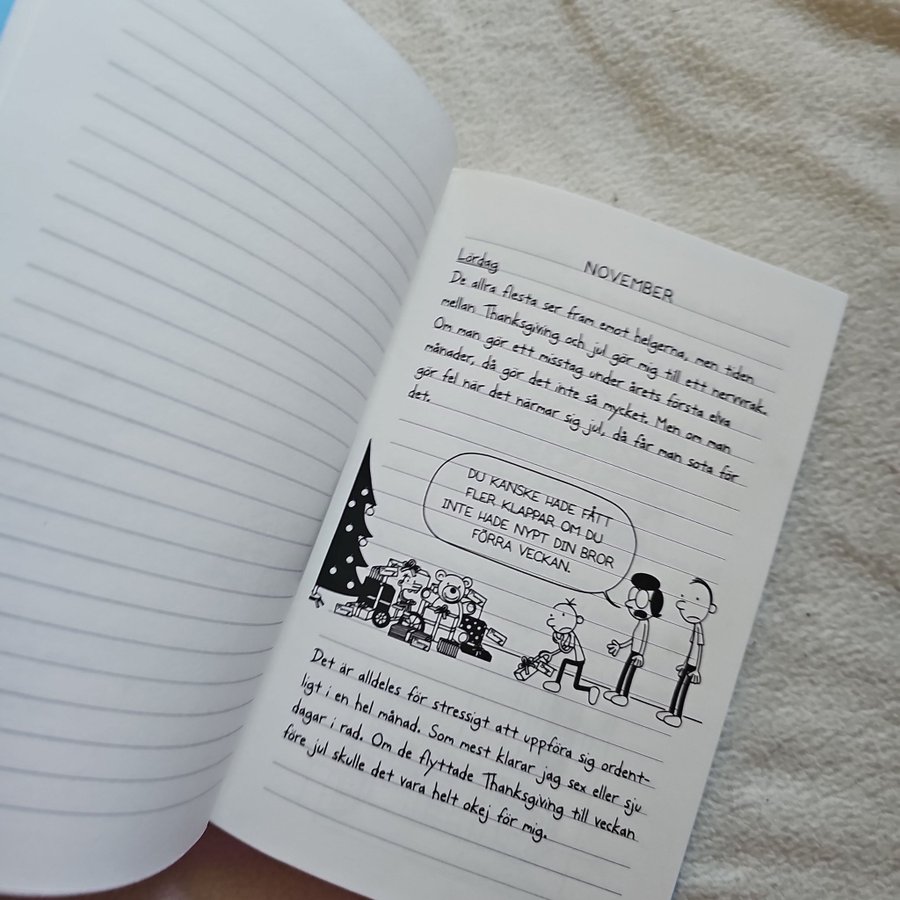 NOVEMBER
Lördag
De allra flesta ser fram emot helgerna, men tiden
mellan Thanksgiving och jul gör mig till ett nervvrak.
Om man gör ett misstag under årets första elva
månader, då gör det inte så mycket. Men om man
gör fel när det närmar sig jul, då får man sota för
det.
DU KANSKE HADE FÅTT
FLER KLAPPAR OM DU
INTE HADE NYPT DIN BROR
FÖRRA VECKAN.
Det är alldeles för stressigt att uppföra sig ordent-
ligt i en hel månad. Som mest klarar jag sex eller sju
dagar i rad. Om de flyttade Thanksgiving till veckan
före jul skulle det vara helt okej för mig.